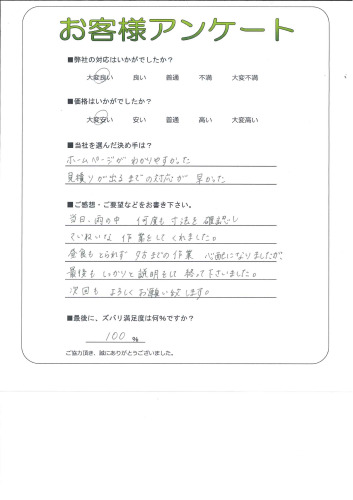 お客様アンケート
■弊社の対応はいかがでしたか?
大変良い 良い 普通 不満 大変不満
■価格はいかがでしたか?
大変安い 安い 普通 高い 大変高い
■当社を選んだ決め手は?
ホームページが わかりやすかった
見積りが出るまでの対応が 早かった
■ご感想・ご要望などをお書き下さい。
当日、雨の中 何度も寸法を確認し
ていねいな 作業をして くれました。
昼食もとられず 夕方までの作業 心配になりましたが、
最後も しっかりと説明をして 帰って下さいました。
次回も よろしくお願い致します。
■最後に、ズバリ満足度は何%ですか?
100 %
ご協力頂き、誠にありがとうございました。